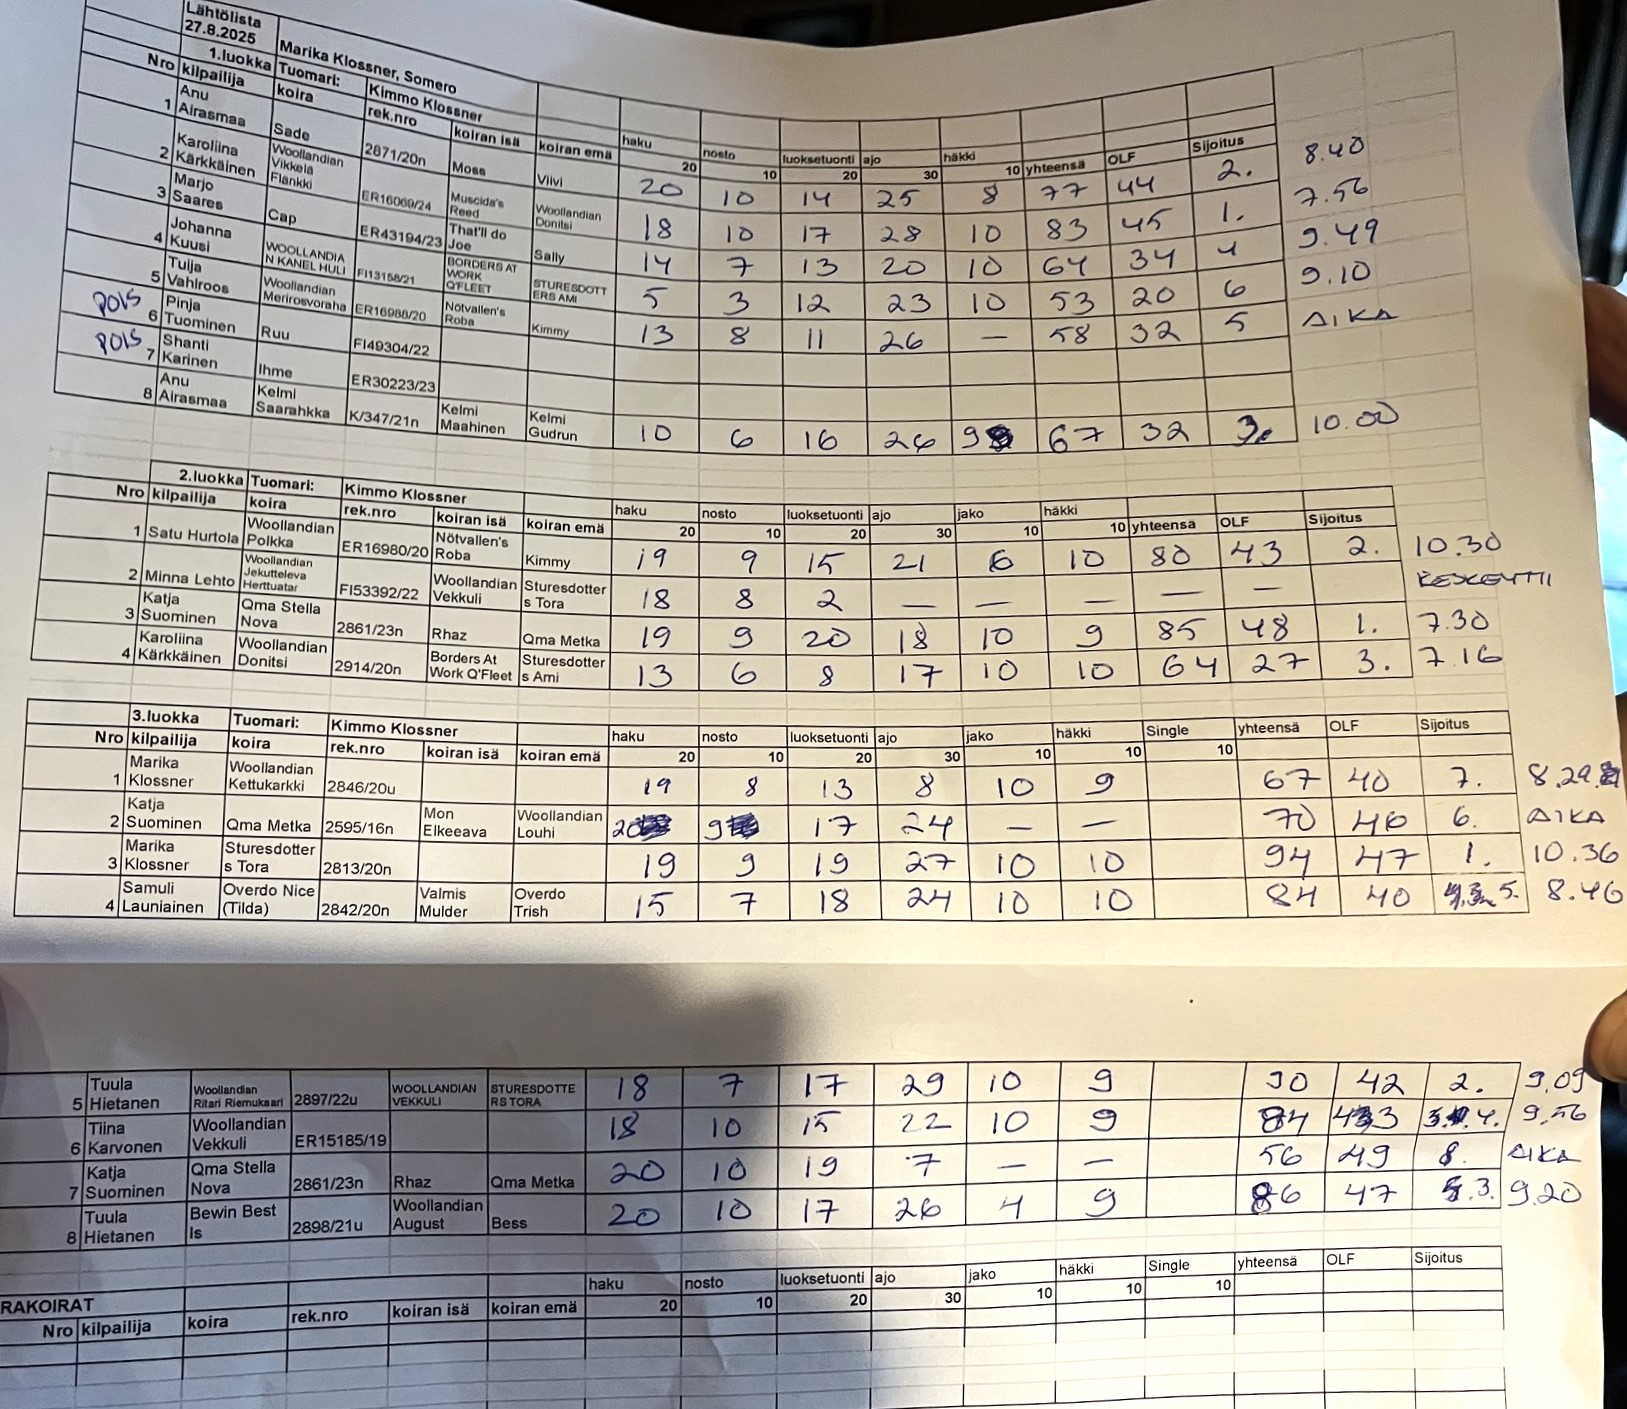 Lähtölista 27.8.2025 Marika Klossner, Somero
1.luokka Tuomari: Kimmo Klossner
Nro kilpailija koira rek.nro koiran isä koiran emä haku 20 nosto 10 luoksetuonti 20 ajo 30 häkki 10 yhteensä OLF Sijoitus
1 Anu Airasmaa Sade 2871/20n Moss Viivi 20 10 14 25 8 77 44 2. 8.40
2 Karoliina Kärkkäinen Woollandian Vikkelä Flankki ER16069/24 Muscida's Reed Woollandian Donitsi 18 10 17 28 10 83 45 1. 7.56
3 Marjo Saares Cap ER43194/23 That'll do Joe Sally 14 7 13 20 10 64 34 4 9.49
4 Johanna Kuusi WOOLLANDIAN KANEL HULI FI13158/21 BORDERS AT WORK Q'FLEET STURESDOTTERS AMI 5 3 12 23 10 53 20 6 9.10
5 Tuija Vahlroos Woollandian Merirosvoraha ER16988/20 Nötvallen's Roba Kimmy 13 8 11 26 — 58 32 5 AIKA
POIS 6 Pinja Tuominen Ruu FI49304/22
POIS 7 Shanti Karinen Ihme ER30223/23
8 Anu Airasmaa Kelmi Saarahkka K/347/21n Kelmi Maahinen Kelmi Gudrun 10 6 16 26 9 67 32 3. 10.00
2.luokka Tuomari: Kimmo Klossner
Nro kilpailija koira rek.nro koiran isä koiran emä haku 20 nosto 10 luoksetuonti 20 ajo 30 jako 10 häkki 10 yhteensä OLF Sijoitus
1 Satu Hurtola Woollandian Polkka ER16980/20 Nötvallen's Roba Kimmy 19 9 15 21 6 10 80 43 2. 10.30
2 Minna Lehto Woollandian Jekutteleva Herttuatar FI53392/22 Woollandian Vekkuli Sturesdotters Tora 18 8 2 — — — — — KESKEYTTI
3 Katja Suominen Qma Stella Nova 2861/23n Rhaz Qma Metka 19 9 20 18 10 9 85 48 1. 7.30
4 Karoliina Kärkkäinen Woollandian Donitsi 2914/20n Borders At Work Q'Fleet Sturesdotters Ami 13 6 8 17 10 10 64 27 3. 7.16
3.luokka Tuomari: Kimmo Klossner
Nro kilpailija koira rek.nro koiran isä koiran emä haku 20 nosto 10 luoksetuonti 20 ajo 30 jako 10 häkki 10 Single 10 yhteensä OLF Sijoitus
1 Marika Klossner Woollandian Kettukarkki 2846/20u 19 8 13 8 10 9 67 40 7. 8.29
2 Katja Suominen Qma Metka 2595/16n Mon Elkeeava Woollandian Louhi 20 9 17 24 — — 70 46 6. AIKA
3 Marika Klossner Sturesdotters Tora 2813/20n 19 9 19 27 10 10 94 47 1. 10.36
4 Samuli Launiainen Overdo Nice (Tilda) 2842/20n Valmis Mulder Overdo Trish 15 7 18 24 10 10 84 40 5. 8.46
5 Tuula Hietanen Woollandian Ritari Riemukaari 2897/22u WOOLLANDIAN VEKKULI STURESDOTTERS TORA 18 7 17 29 10 9 90 42 2. 9.09
6 Tiina Karvonen Woollandian Vekkuli ER15185/19 18 10 15 22 10 9 84 43 4. 9.56
7 Katja Suominen Qma Stella Nova 2861/23n Rhaz Qma Metka 20 10 19 7 — — 56 49 8. AIKA
8 Tuula Hietanen Bewin Best Is 2898/21u Woollandian August Bess 20 10 17 26 4 9 86 47 3. 9.20
haku 20 nosto 10 luoksetuonti 20 ajo 30 jako 10 häkki 10 Single 10 yhteensä OLF Sijoitus
RAKOIRAT
Nro kilpailija koira rek.nro koiran isä koiran emä